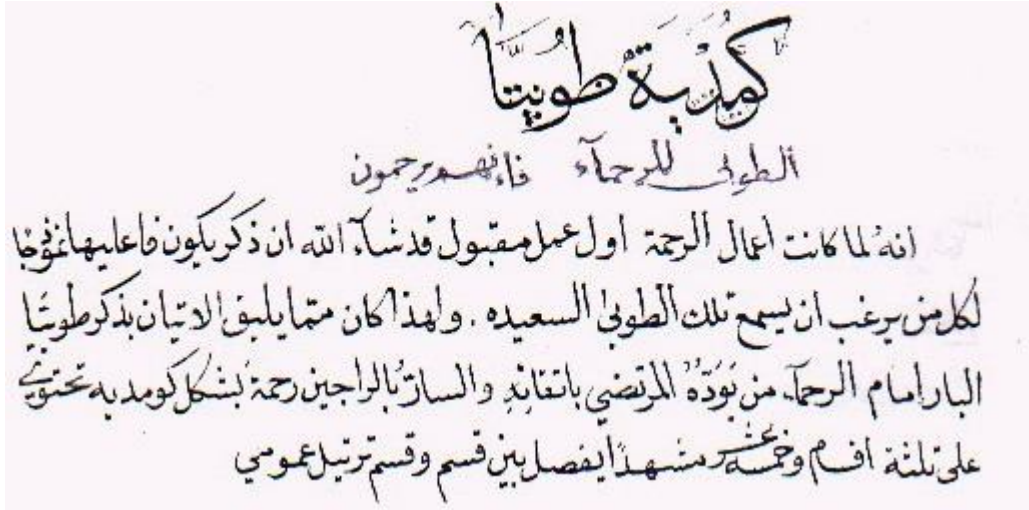 كوميدية طوبيتا
الطوبى للرحمآء فانهم يرحمون
انهُ لما كانت اعمال الرحمة اول عمل مقبول قد شآء الله ان ذكر يكون فاعليها نموذجا
لكل من يرغب ان يسمع تلك الطوبى السعيده . ولهذا كان متما يليق الاتيان بذكر طوبيتا
البار امام الرحمآء من المرتضي والسارّ بالراجين رحمةً بشكل كومديه تحتوي
على ثلثة اقسام وخمسة عشر مشهدًا يفصل بين قسم وقسم ترتيل عمومي